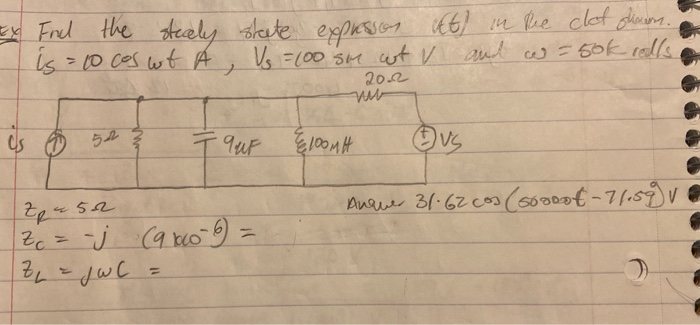 Ex Find the steady state expression v(t) in the ckt shown.
is = 10 cos wt A , Vs = 100 sin wt V and ω = 50k rad/s
20Ω
is 5Ω 9uF 100mH + - VS
Answer 31.62 cos (50000t - 71.59°) V
ZR = 5Ω
Zc = -j (9x10^-6) =
ZL = jωC =